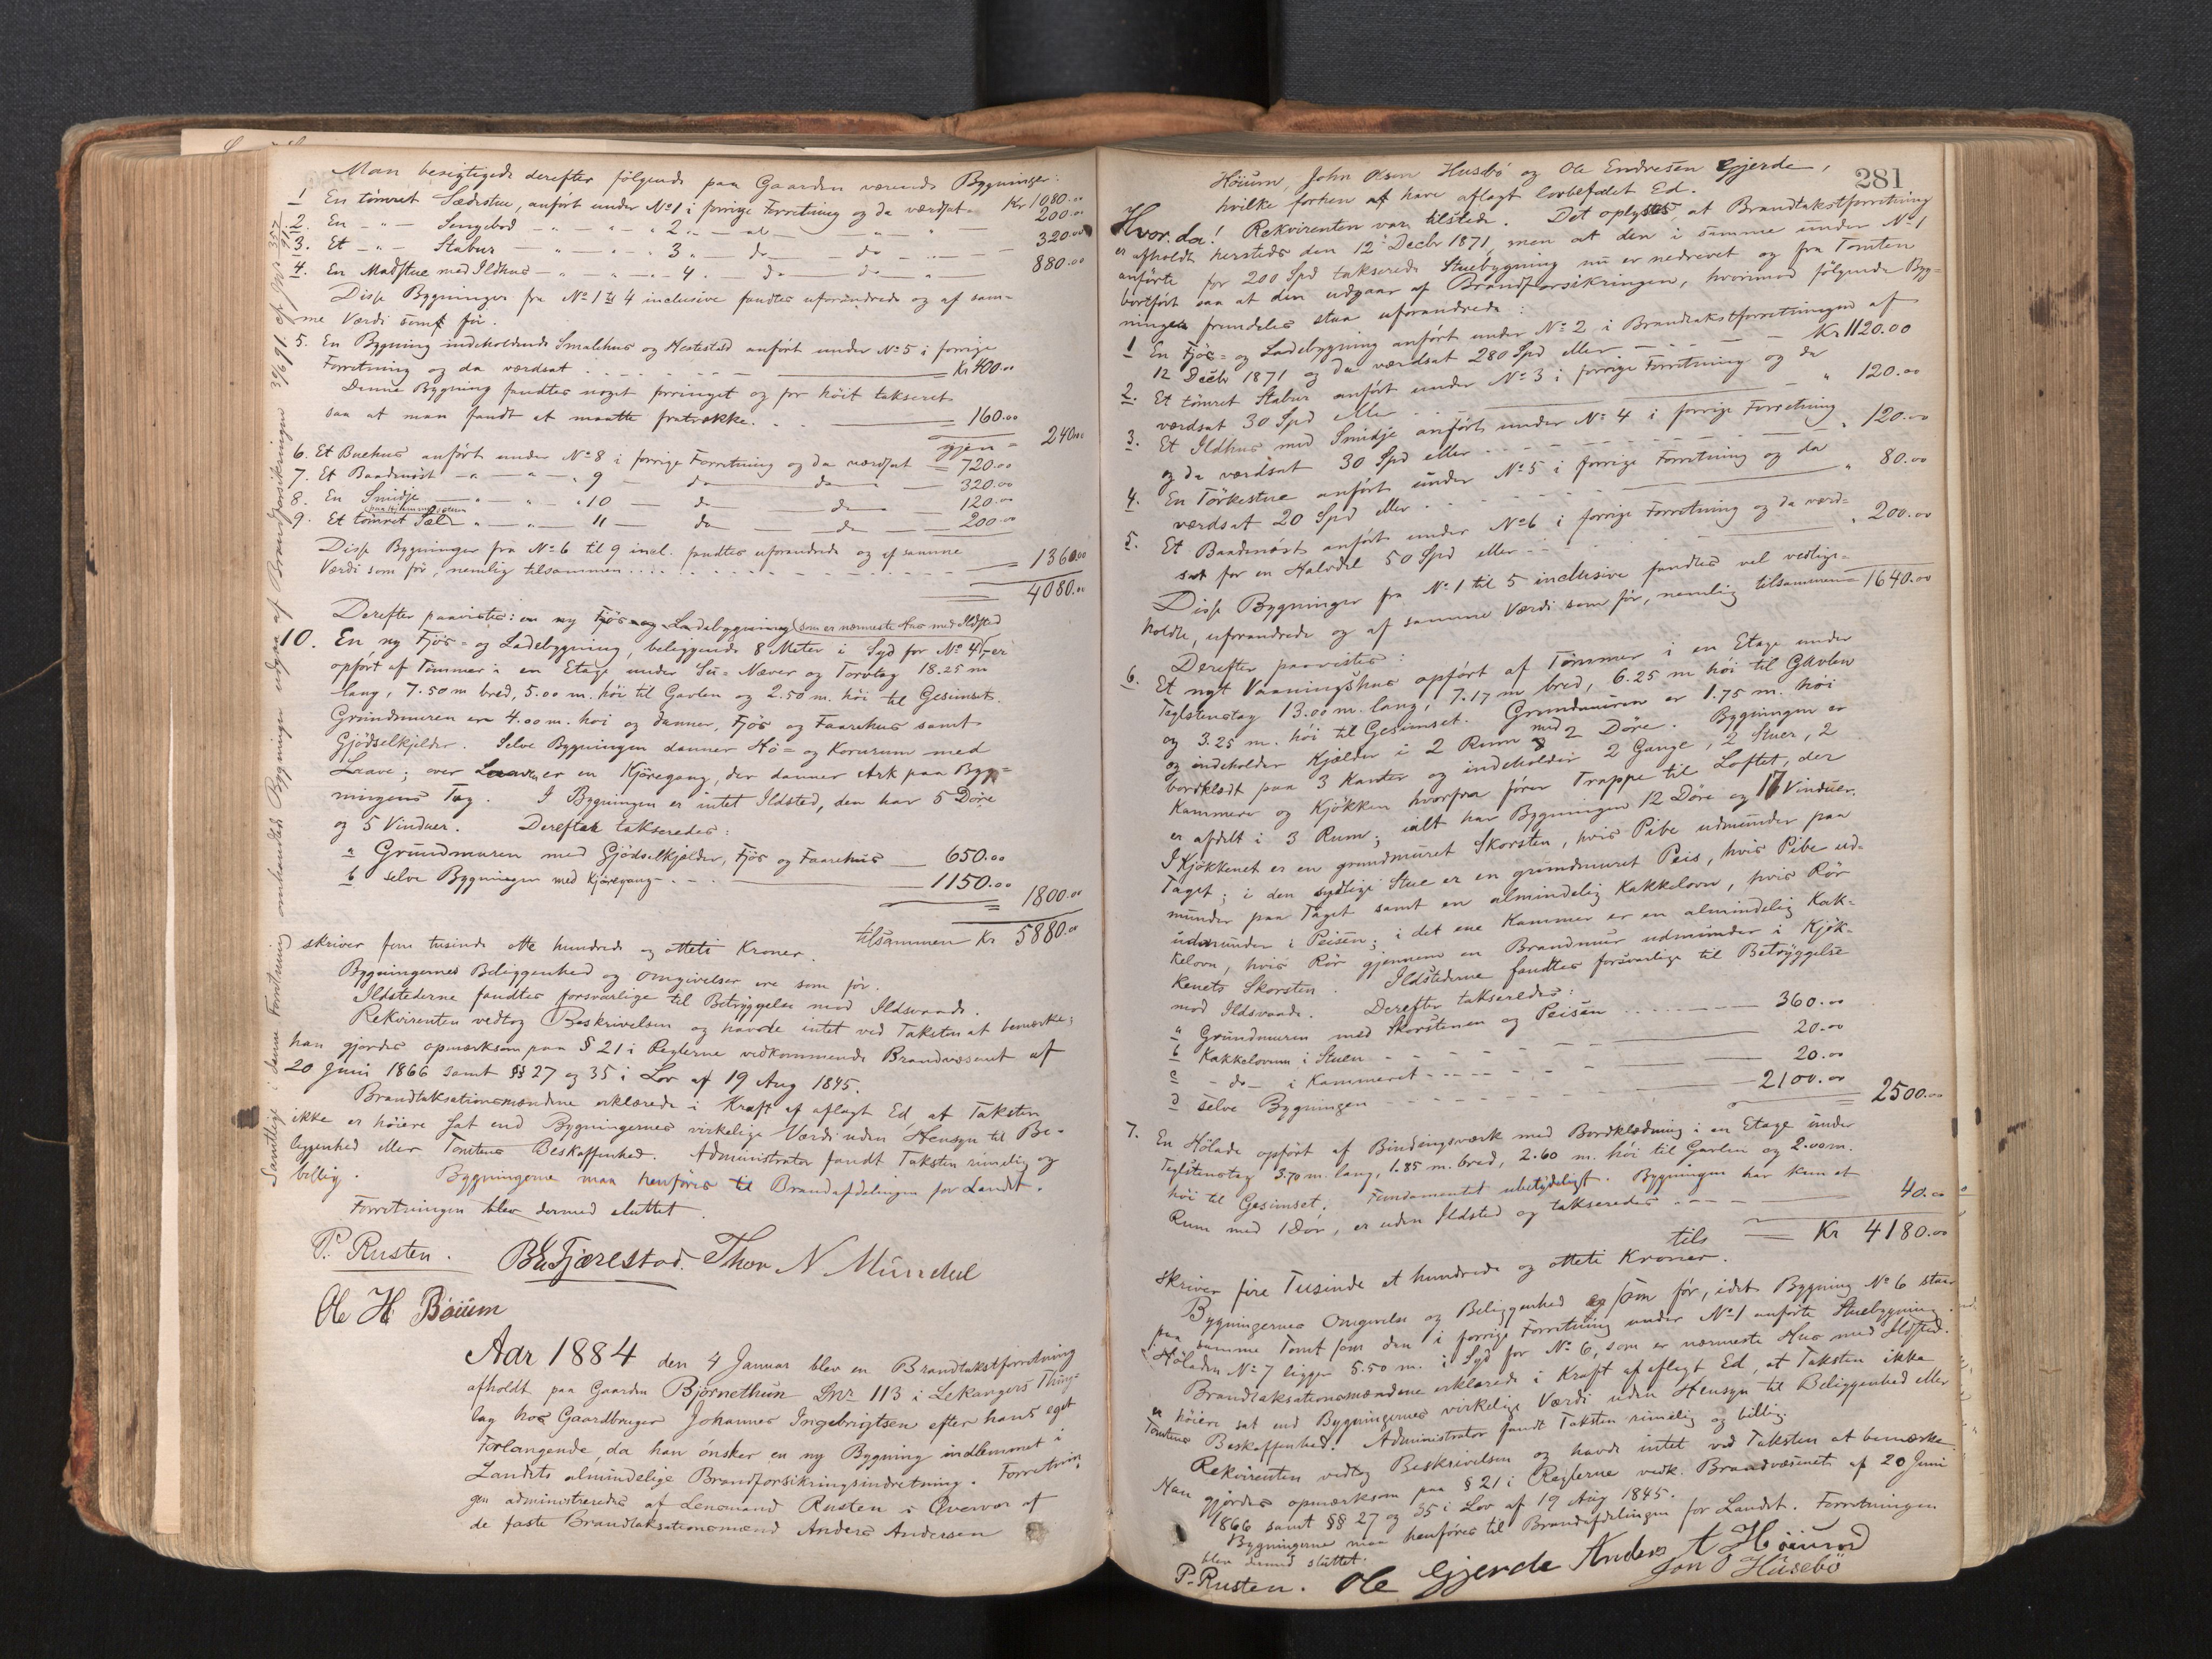 Man besigtigede derefter følgende paa Gaarden værende Bygninger:
1 En tømret Sædestue, anført under No 1 i forrige Forretning og da værdsat Kr 1080.00
2. En -"- Sengebod -"- -"- " 2 "- al -"- 200.00
3. Et -"- Stabur -"- " " 3 " do - do - 320.00
4. En Madstue med Ildhus -"- " - 4. do do " 880.00
Disse Bygninger fra No 1 til 4 inclusive fandtes uforandrede og af sam-
me Værdi som før.
5. En Bygning indeholdende Smalehus og Hestestald anført under No 5 i forrige
Forretning og da værdsat . . . . . Kr 400.00
Denne Bygning fandtes noget forringet og for høit takseret
saa at man fandt at maatte fratrække . . . 160.00
igjen = 240.00
6. Et Buehus anført under No 8 i forrige Forretning og da værdsat = 720.00
7. Et Baadnøst -"- " - " 9 - do do " - 320.00
8. En Smidje -"- " " 10 - do do 120.00
9. Et tømret Sæl " -"- 11 - do do - 200.00
Disse Bygninger fra No 6 til 9 incl. fandtes uforandrede og af samme
Værdi som før, nemlig tilsammen . . . . = 1360.00
4080.00
Derefter paavistes: en ny Fjøs og Ladebygning (som er nærmeste Hus med Ildsted
10. En ny Fjøs- og Ladebygning, beliggende 8 Meter i Syd for No 4, er
opført af Tømmer i en Etage under Su- Næver og Torvtag 18.25 m
lang, 7.50 m bred, 5.00 m. høi til Gavlen og 2.50 m. høi til Gesimset.
Grundmuren er 4.00 m. høi og danner Fjøs og Faarehus samt
Gjødselkjelder. Selve Bygningen danner Hø- og Kornrum med
Laave; over Laaven er en Kjøregang, der danner Ark paa Byg-
ningens Tag. I Bygningen er intet Ildsted, den har 5 Døre
og 5 Vinduer. Derefter takseredes:
a Grundmuren med Gjødselkjelder, Fjøs og Faarehus — 650.00
b selve Bygningen med Kjøregang - . - . — 1150.00
= 1800.00
tilsammen Kr 5880.00
skriver fem tusinde otte hundrede og otteti Kroner.
Bygningernes Beliggenhed og Omgivelser ere som før.
Ildstederne fandtes forsvarlige til Betryggelse mod Ildsvaade.
Rekvirenten vedtog Beskrivelsen og havde intet ved Taksten at bemærke;
han gjordes opmærksom paa § 21 i Reglerne vedkommende Brandvæsenet af
20 Juni 1866 samt §§ 27 og 35 i Lov af 19 Aug 1845.
Brandtaksationsmændene erklærede i Kraft af aflagt Ed at Taksten
ikke er høiere sat end Bygningernes virkelige Værdi uden Hensyn til Be-
liggenhed eller Tomtens Beskaffenhed. Administrator fandt Taksten rimelig og
billig. Bygningerne maa henføres til Brandafdelingen for Landet.
Forretningen blev dermed sluttet.
P. Rusten. B E Fjærestad. Thor N Mundal
Ole H. Bøium
Aar 1884 den 4 Januar blev en Brandtakstforretning
afholdt paa Gaarden Bjørnethun Lnr 113 i Lekangers Thing-
lag hos Gaardbruger Johannes Ingebrigtsen efter hans eget
Forlangende, da han ønsker en ny Bygning indlemmet i
Landets almindelige Brandforsikringsindretning. Forretnin
gen administreredes af Lensmand Rusten i Overvær af
de faste Brandtaksationsmænd Anders Andersen
Samtlige i denne Forretning omhandlede Bygninger udgaa af Brandforsikringen 30/6 91 cf No 357/91
281
Høium, John Olsen Husebø og Ole Endresen Gjerde,
hvilke forhen af have aflagt lovbefalet Ed.
Hvor da! Rekvirenten var tilstede. Det oplystes, at Brandtakstforretning
er afholdt hersteds den 12te Decbr 1871, men at den i samme under No 1
anførte for 200 Spd takserede Stuebygning nu er nedrevet og fra Tomten
bortført saa at den udgaar af Brandforsikringen, hvorimod følgende Byg-
ninger fremdeles staa uforandrede:
1 En Fjøs- og Ladebygning anført under No 2 i Brandtakstforretningen af
12 Decbr 1871 og da værdsat 280 Spd eller - - - - Kr 1120.00
2. Et tømret Stabur anført under No 3 i forrige Forretning og da
værdsat 30 Spd eller . . — " 120.00
3. Et Ildhus med Smidje anført under No 4 i forrige Forretning
og da værdsat 30 Spd eller - - - - " 120.00
4. En Tørkestue anført under No 5 i forrige Forretning og da
værdsat 20 Spd eller - - — " 80.00
5. Et Baadnøst anført under No 6 i forrige Forretning og da værd-
sat for en Halvdel 50 Spd eller - - - " 200.00
Disse Bygninger fra No 1 til 5 inclusive fandtes vel vedlige-
holdte, uforandrede og af samme Værdi som før, nemlig tilsammen = 1640.00
Derefter paavistes:
6. Et nyt Vaaningshus opført af Tømmer i en Etage under
Teglstenstag 13.00 m. lang, 7.17 m bred, 6.25 m høi til Gavlen
og 3.25 m. høi til Gesimset. Grundmuren er 1.75 m. høi
og indeholder Kjælder i 2 Rum med 2 Døre. Bygningen er
bordklædt paa 3 Kanter og indeholder 2 Gange, 2 Stuer, 2
Kammere og Kjøkken hvorfra fører Trappe til Loftet, der
er afdelt i 3 Rum; ialt har Bygningen 12 Døre og 17 Vinduer.
I Kjøkkenet er en grundmuret Skorsten, hvis Pibe udmunder paa
Taget; i den sydlige Stue er en grundmuret Peis, hvis Pibe ud-
munder paa Taget samt en almindelig Kakkelovn, hvis Rør
udmunder i Peisen; i det ene Kammer er en almindelig Kak-
kelovn, hvis Rør gjennem en Brandmur udmunder i Kjøk-
kenets Skorsten. Ildstederne fandtes forsvarlige til Betryggelse
mod Ildsvaade. Derefter takseredes:
a Grundmuren med Skorstenen og Peisen . . . . — 360.00
b Kakkelovnen i Stuen - - - - — 20.00
c - do - i Kammeret - - - - — 20.00
d selve Bygningen - - - - — 2100.00
= 2500.00
7. En Hølade opført af Bindingsværk med Bordklædning i en Etage under
Teglstenstag 3.70 m. lang, 1.85 m. bred, 2.60 m. høi til Gavlen og 2.00 m.
høi til Gesimset. Fundamentet ubetydeligt. Bygningen har kun et
Rum med 1 Dør, er uden Ildsted og takseredes - - - 40.00
tils = Kr 4180.00
skriver fire Tusinde et hundrede og otteti Kroner.
Bygningernes Omgivelse og Beliggenhed er som før, idet Bygning No 6 staar
paa samme Tomt som den i forrige Forretning under No 1 anførte Stuebygning.
Høladen No 7 ligger 5.50 m. i Syd for No 6, som er nærmeste Hus med Ildsted.
Brandtaksationsmændene erklærede i Kraft af aflagt Ed, at Taksten ikke
er høiere sat end Bygningernes virkelige Værdi uden Hensyn til Beliggenhed eller
Tomtens Beskaffenhed. Administrator fandt Taksten rimelig og billig.
Rekvirenten vedtog Beskrivelsen og havde intet ved Taksten at bemærke.
Han gjordes opmærksom paa § 21 i Reglerne vedk. Brandvæsenet af 20 Juni
1866 samt §§ 27 og 35 i Lov af 19 Aug 1845.
Bygningerne maa henføres til Brandafdelingen for Landet. Forretningen
blev dermed sluttet.
P. Rusten. Ole Gjerde Anders A Høium
Jon O Husebö